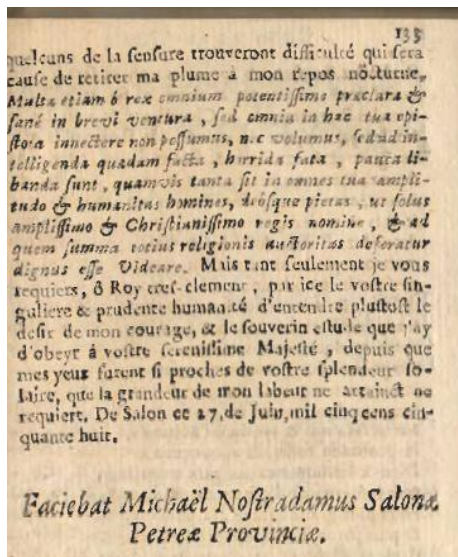 133
quelcuns de la senſure trouveront difficulté qui ſera
cauſe de retirer ma plume à mon repos nocturne,
Multa etiam ô rex omnium potentiſſime præclara &
ſané in brevi ventura, ſed omnia in hac tua epi-
ſtola innectere non poſſumus, nec volumus, ſed ad in-
telligenda quædam facta, horrida fata, pauca li-
banda ſunt, quamvis tanta ſit in omnes tua ampli-
tudo & humanitas homines, deóſque pietas, ut ſolus
ampliſſimo & Chriſtianiſſimo regis nomine, & ad
quem ſumma totius religionis auctoritas deferatur
dignus eſſe videare. Mais tant ſeulement je vous
requiers, ô Roy tres-clement, par icelle voſtre ſin-
guliere & prudente humanité d'entendre pluſtoſt le
deſir de mon courage, & le ſouverin eſtude que j'ay
d'obeyr á voſtre ſereniſſime Majeſté, depuis que
mes yeux furent ſi proches de voſtre ſplendeur ſo-
laire, que la grandeur de mon labeur ne attainct ne
requiert. De Salon ce 27, de Juin, mil cinq cens cin-
quante huit.
Faciebat Michaël Noſtradamus Salonæ
Petreæ Provinciæ.